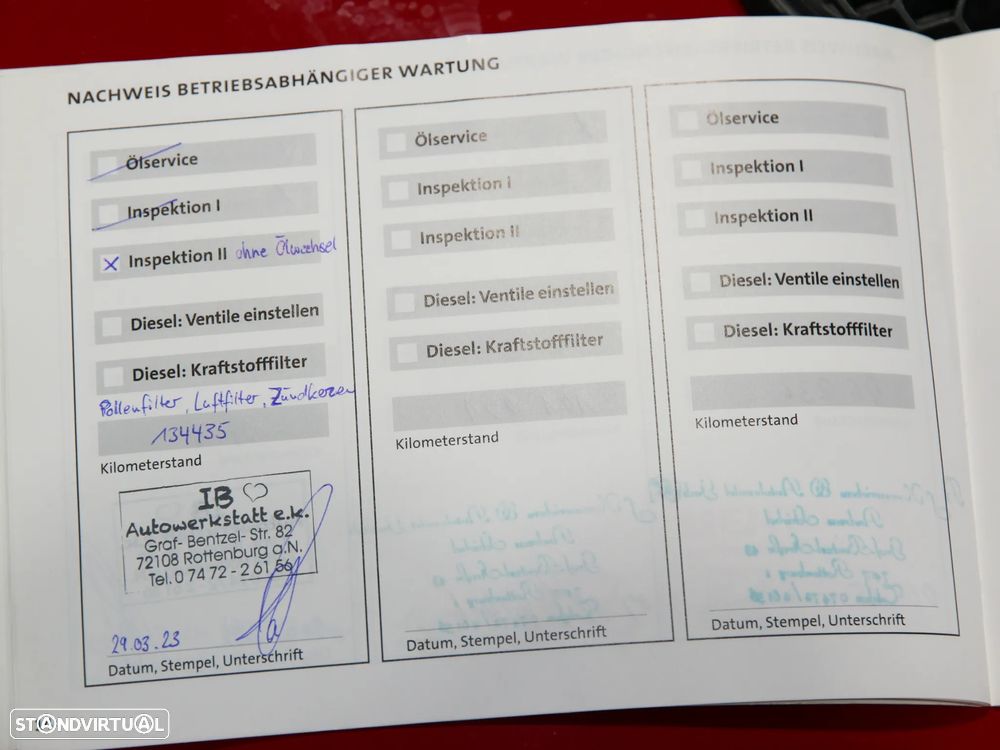 NACHWEIS BETRIEBSABHÄNGIGER WARTUNG
Ölservice
Inspektion I
X Inspektion II ohne Ölwechsel
Diesel: Ventile einstellen
Diesel: Kraftstofffilter
Pollenfilter, Luftfilter, Zündkerzen
134435
Kilometerstand
IB
Autowerkstatt e.K.
Graf-Bentzel-Str. 82
72108 Rottenburg a.N.
Tel. 0 74 72 - 2 61 56
29.03.23
Datum, Stempel, Unterschrift
Ölservice
Inspektion I
Inspektion II
Diesel: Ventile einstellen
Diesel: Kraftstofffilter
Kilometerstand
Datum, Stempel, Unterschrift
Ölservice
Inspektion I
Inspektion II
Diesel: Ventile einstellen
Diesel: Kraftstofffilter
Kilometerstand
Datum, Stempel, Unterschrift
STANDVIRTUAL